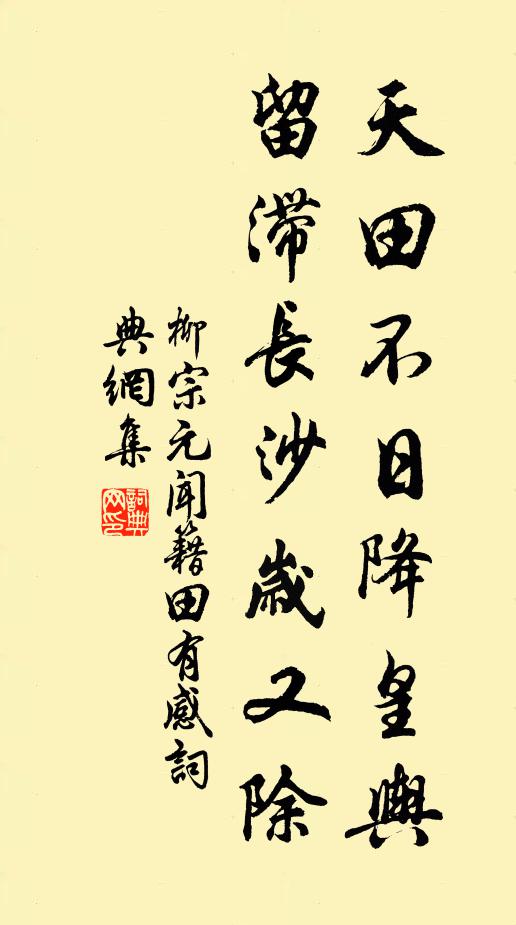 天田不日降皇輿
留滯長沙歲又除
柳宗元聞籍田有感詞
典網集
詞典网印